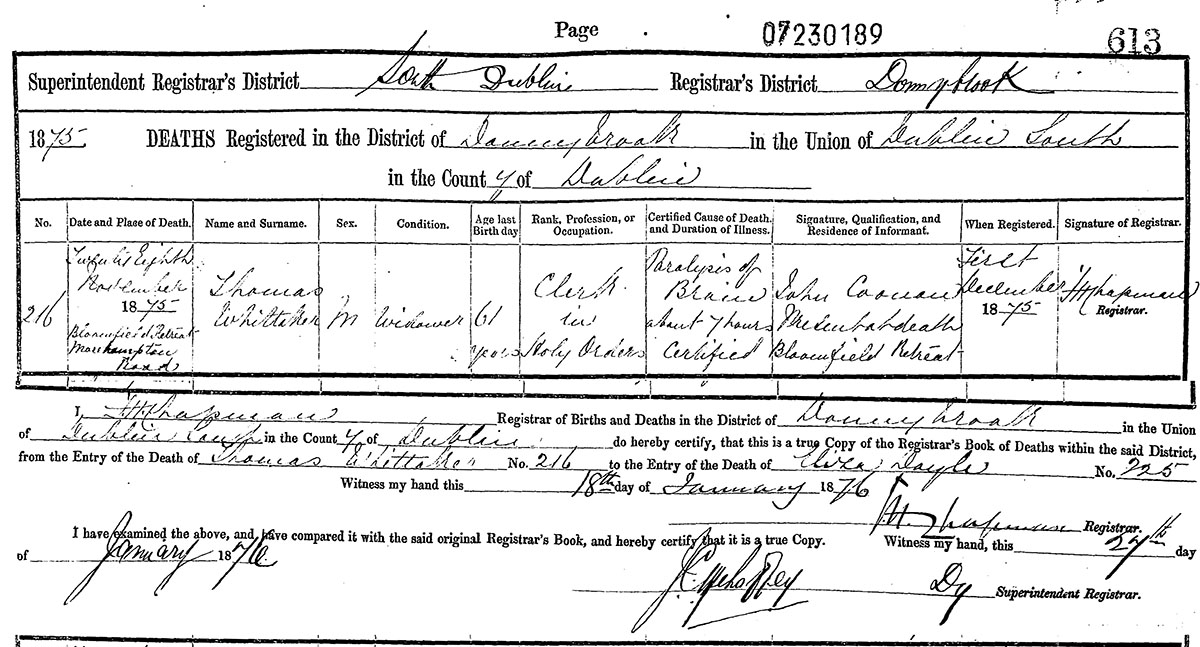 Page 07230189 613
Superintendent Registrar's District South Dublin Registrar's District Donnybrook
1875 DEATHS Registered in the District of Donnybrook in the Union of Dublin South
in the County of Dublin
No. Date and Place of Death. Name and Surname. Sex. Condition. Age last Birth day Rank, Profession, or Occupation. Certified Cause of Death, and Duration of Illness. Signature, Qualification, and Residence of Informant. When Registered. Signature of Registrar.
216
Eighth
November
1875
Bloomfield Retreat
Morehampton
Road
Thomas
Whittaker
M
Widower
61
years
Clerk
in
Holy Orders
Paralysis of
Brain
about 7 hours
Certified
John Coonan
Present at death
Bloomfield Retreat
First
December
1875
Chapman
Registrar.
I, Chapman Registrar of Births and Deaths in the District of Donnybrook in the Union
of Dublin South in the County of Dublin do hereby certify, that this is a true Copy of the Registrar's Book of Deaths within the said District,
from the Entry of the Death of Thomas Whittaker No. 216 to the Entry of the Death of Eliza Doyle No. 225
Witness my hand this 18th day of January 1876
Chapman Registrar.
I have examined the above, and have compared it with the said original Registrar's Book, and hereby certify that it is a true Copy. Witness my hand, this 27th day
of January 1876
Dy Superintendent Registrar.